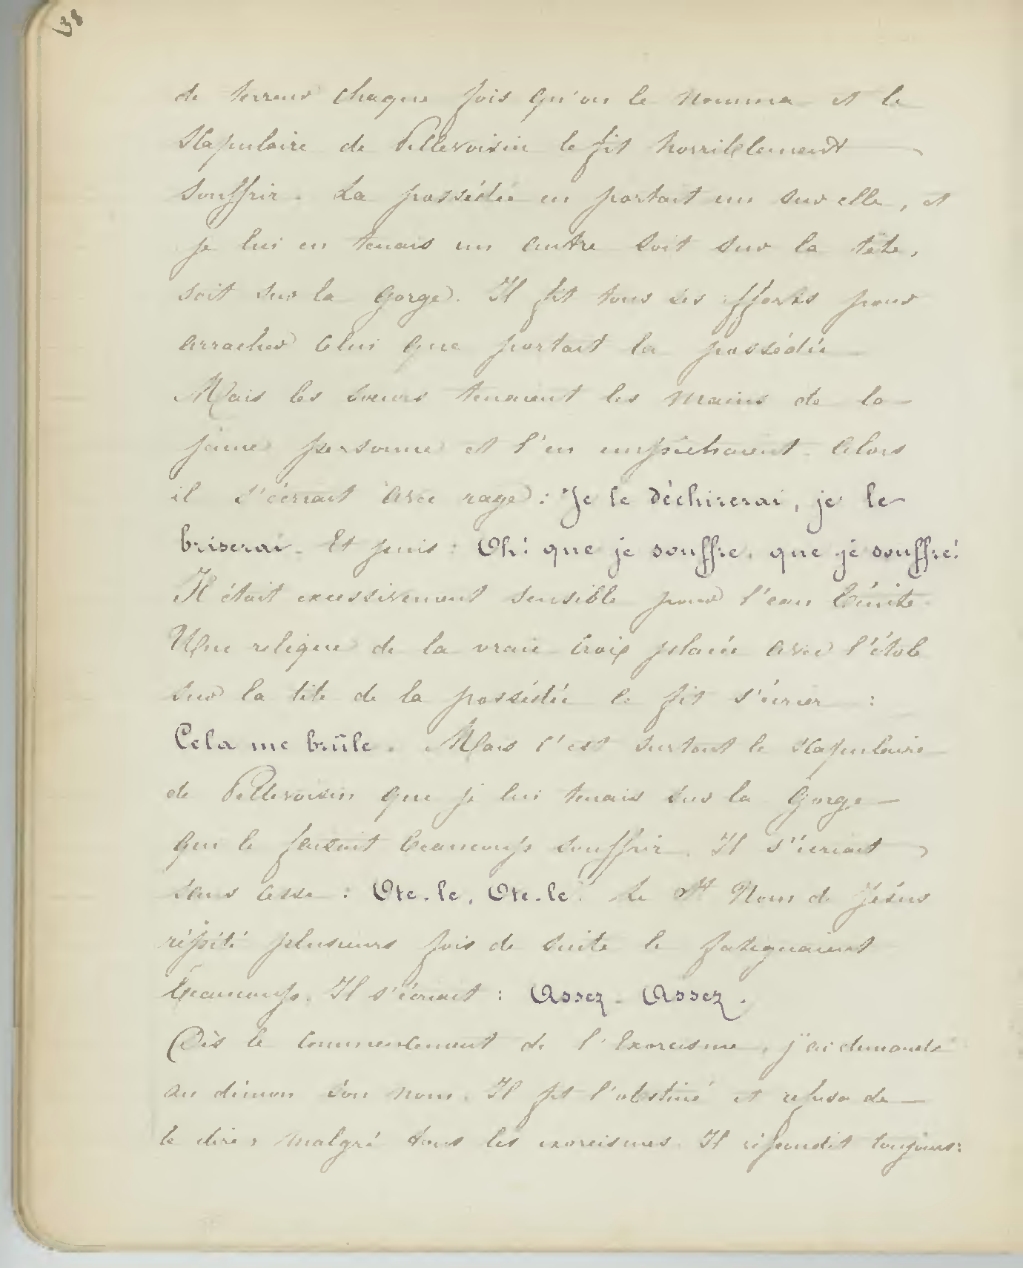 38
de terreur chaque fois qu'on le nomma et le
Scapulaire de Pellevoisin le fit horriblement
souffrir. La possédée en portait un sur elle, et
je lui en tenais un autre soit sur la tête,
soit sur la gorge. Il fit tous ses efforts pour
arracher celui que portait la possédée
Mais les soeurs tenaient les mains de la
jeune personne et l'en empêchaient. Alors
il s'écriait avec rage : Je le déchirerai, je le
briserai. Et puis : Oh! que je souffre, que je souffre!
Il était excessivement sensible pour l'eau bénite.
Une relique de la vraie Croix placée avec l'étole
sur la tête de la possédée le fit s'écrier :
Cela me brûle. Mais c'est surtout le scapulaire
de Pellevoisin que je lui tenais sur la gorge
qui le faisait beaucoup souffrir. Il s'écriait
sans cesse : Ote-le, Ote-le! Le St Nom de Jésus
répété plusieurs fois de suite le fatiguaient
beaucoup. Il s'écriait : Assez. Assez.
Dès le commencement de l'Exorcisme, j'ai demandé
au démon son nom. Il fit l'obstiné et refusa de
le dire, malgré tous les exorcismes. Il répondit toujours: